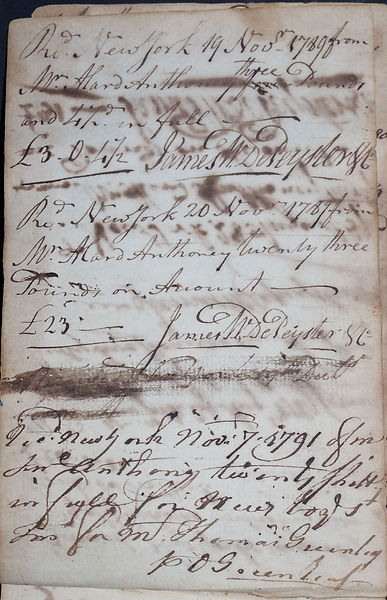 Recd. New York 19 Novr. 1789 from
Mr. Alard Anthony three Pounds
and 4½d. in full
£3.0.4½ James W DePeyster & Co
Recd. New York 20 Novr. 1789 from
Mr. Alard Anthoney twenty three
Pounds on Account
£23 James W DePeyster & Co
Recd. New York Novr. 7. 1791 of
Anthony twenty
in full for
for Mr. Thomas Greenleaf
Greenleaf